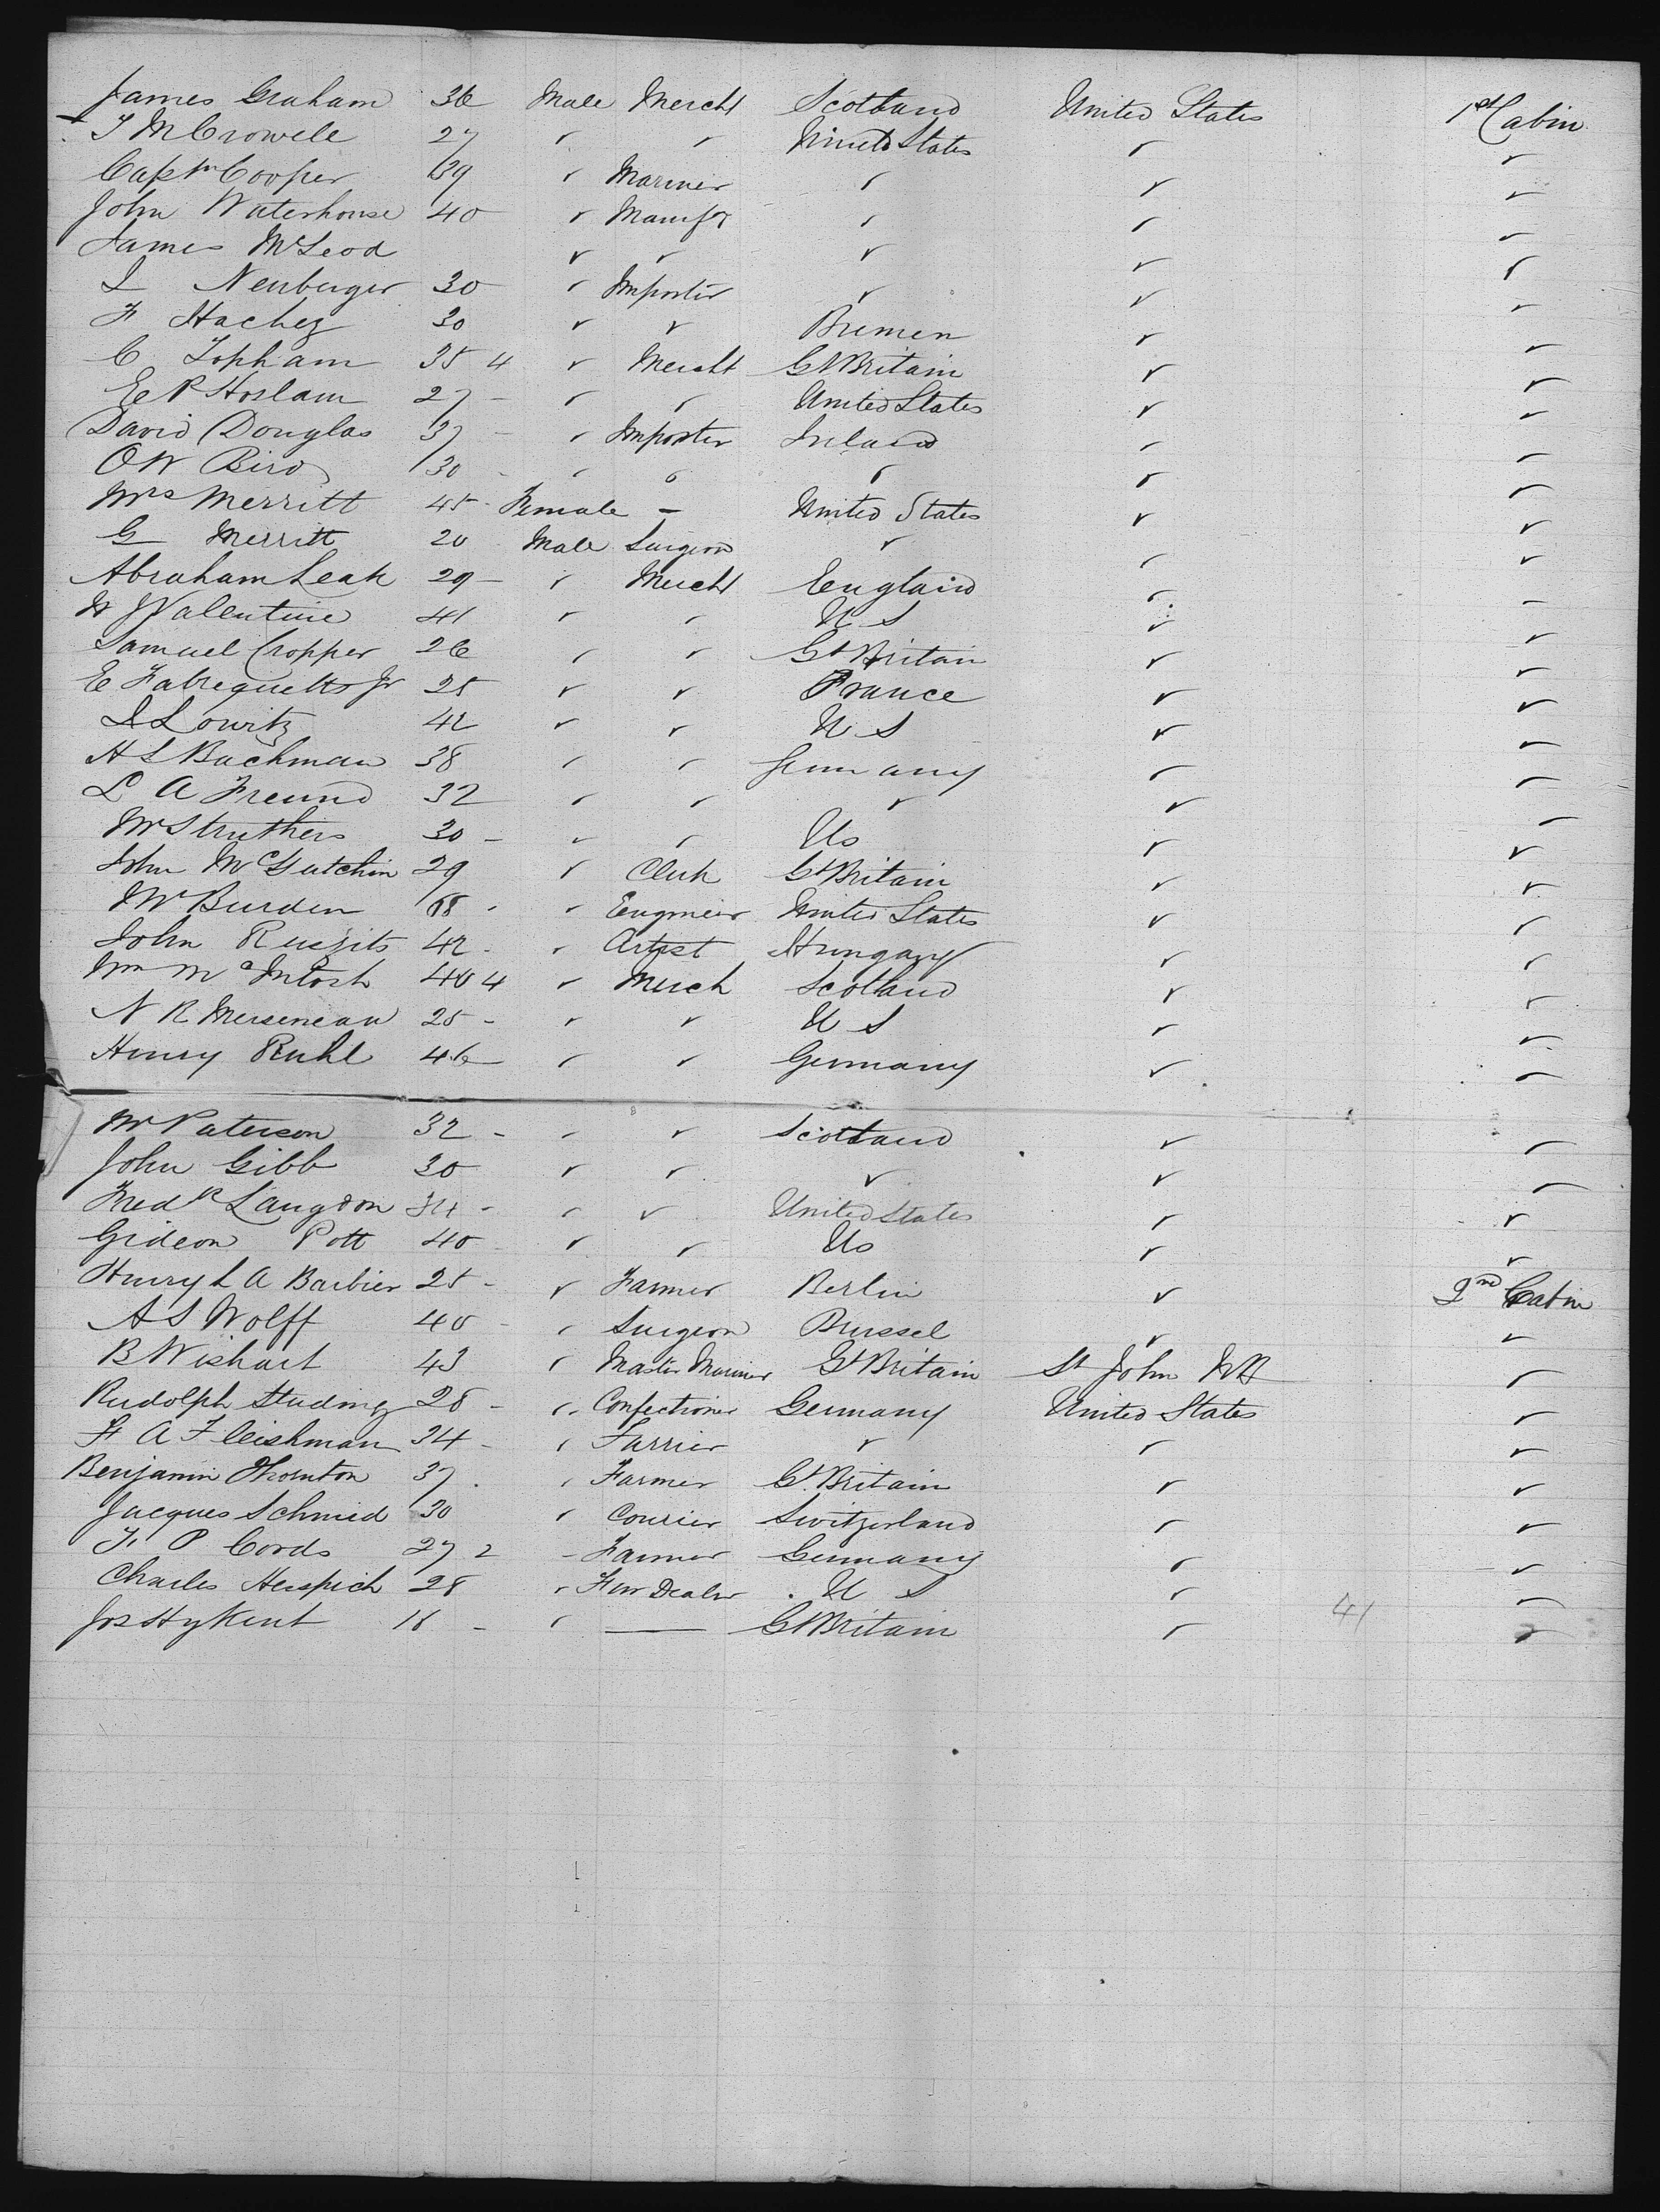 James Graham 36 Male Mercht Scotland United States 1st Cabin
T M Crowell 27 " " United States " "
Captn Cooper 39 " Mariner " " "
John Waterhouse 40 " Manufr " " "
James McLeod " " " " "
L Neuburger 30 " Importer " " "
F Hachez 30 " " Bremen " "
C Topham 35 4 " Mercht Gt Britain " "
E P Hoslam 27 - " " United States " "
David Douglas 37 - " Importer Ireland " "
O W Bird 30 - " " " " "
Mrs Merritt 45 - Female - United States " "
G Merritt 20 Male Surgeon " " "
Abraham Leak 29 - " Mercht England " "
W J Valentine 41 " " U S " "
Samuel Cropper 26 " " Gt Britain " "
E Fabreguetts Jr 25 " " France " "
I Lowitz 42 " " U S " "
H S Bachman 38 " " Germany " "
L A Freund 32 " " " " "
Mr Struthers 30 - " " Us " "
John McGutchin 29 " Clerk Gt Britain " "
Mr Burden 68 - " Engineer United States " "
John Ruszits 42 - " Artist Hungary " "
Wm McIntosh 40 4 " Merch Scotland " "
N R Merseneau 25 - " " U S " "
Henry Ruhl 46 " " Germany " "
Mr Paterson 32 - " " Scotland " "
John Gibb 30 " " " " "
Fredk Langdon 34 - " " United States " "
Gideon Pott 40 " " Us " "
Henry L A Barbier 25 - " Farmer Berlin " 2nd Cabin
A S Wolff 40 - " Surgeon Brussel " "
B Wishart 43 " Master Mariner Gt Britain St John NB "
Rudolph Studing 28 - " Confectioner Germany United States "
F A Fleishman 24 - " Furrier " " "
Benjamin Thornton 37 . " Farmer Gt Britain " "
Jacques Schmid 30 " Courier Switzerland " "
F. P Cords 27 2 - Farmer Germany " "
Charles Herpich 28 " Fur Dealer U S " "
Jos Hy Kent 18 - " — Gt Britain " 41 "